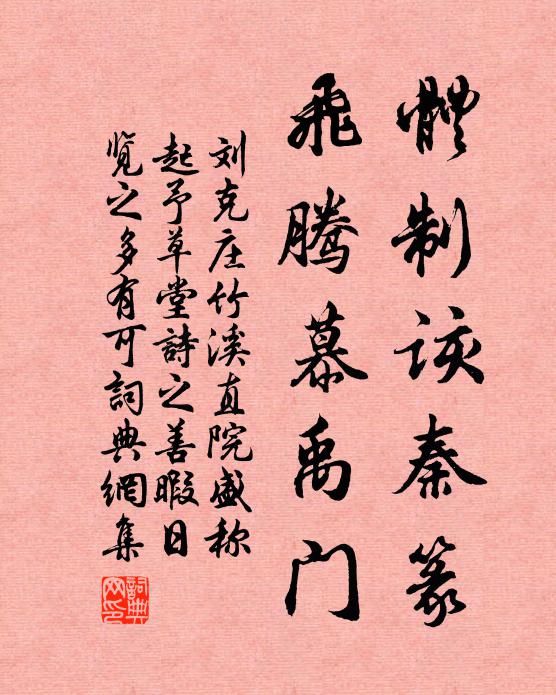 體制詼秦篆
飛騰慕禹门
刘克庄竹溪直院盛称
起予草堂詩之善暇日
覧之多有可詞典網集
詞典網印